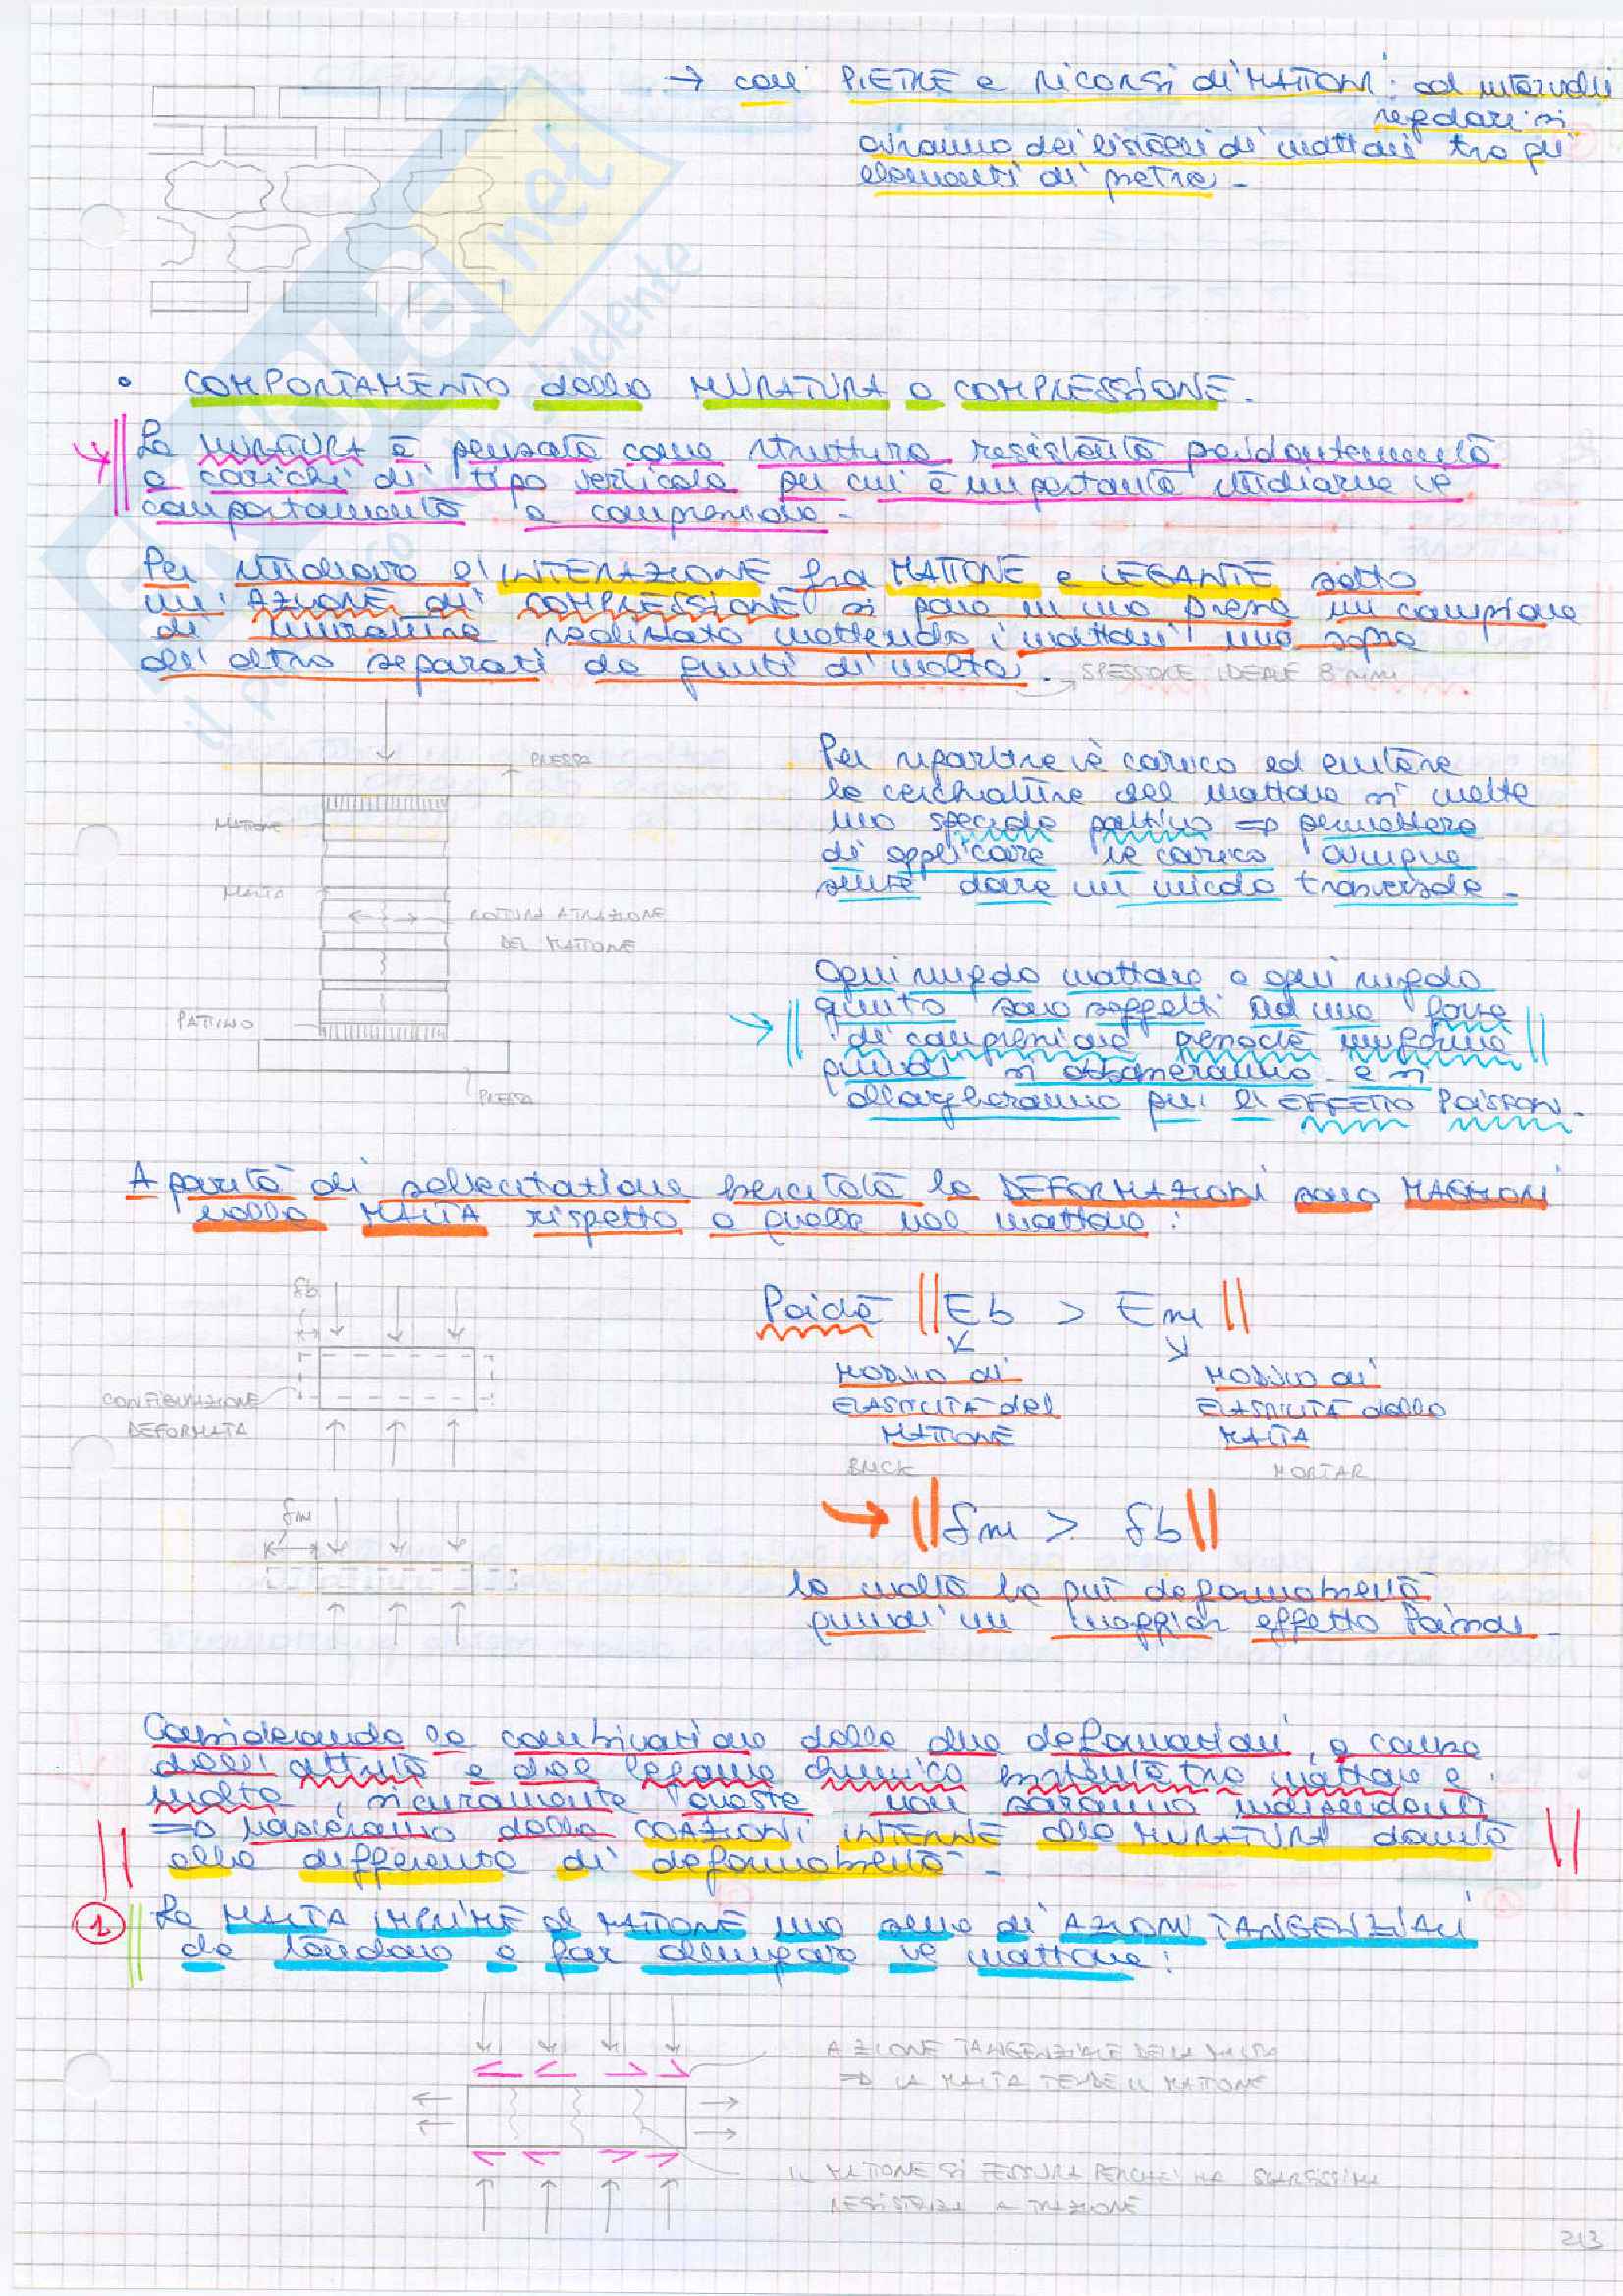 → con PIETRE e RICORSI di MATTONI: ad intervalli
regolari si
avranno dei listelli di mattoni tra gli
elementi di pietra.
• COMPORTAMENTO della MURATURA a COMPRESSIONE.
La MURATURA è pensata come struttura resistente prevalentemente
a carichi di tipo verticale per cui è importante studiarne il
comportamento a compressione.
Per studiare l'INTERAZIONE fra MATTONE e LEGANTE sotto
un'AZIONE di COMPRESSIONE si pone in una pressa un campione
di muratura realizzato mettendo i mattoni uno sopra
all'altro separati da giunti di malta.
→ SPESSORE IDEALE 8 mm
PRESSA
MATTONE
MALTA
ROTTURA A TRAZIONE
DEL MATTONE
PATTINO
PRESSA
Per ripartire il carico ed evitare
la cerchiatura del mattone si mette
uno speciale pattino => permettere
di applicare il carico ovunque
senza dare un vincolo trasversale.
Ogni singolo mattone e ogni singolo
giunto sono soggetti ad una forza
di compressione pressoché uniforme
quindi si assomeranno e si
allargheranno per l'EFFETTO POISSON.
A parità di sollecitazione esercitata le DEFORMAZIONI sono MAGGIORI
nella MALTA rispetto a quelle nel mattone:
δb
CONFIGURAZIONE
DEFORMATA
Poiché ||Eb > Em||
MODULO di
ELASTICITÀ del
MATTONE
BRICK
MODULO di
ELASTICITÀ della
MALTA
MORTAR
δm
→ ||δm > δb||
la malta ha più deformabilità
quindi un maggior effetto Poisson.
Considerando la combinazione delle due deformazioni, a causa
dell'attrito e del legame chimico esistente tra mattone e
malta, sicuramente queste non saranno indipendenti
=> Nasceranno delle COAZIONI INTERNE alla MURATURA dovute
alla differente di deformabilità.
1 La MALTA IMPRIME al MATTONE una serie di AZIONI TANGENZIALI
da tendere a far allungare il mattone:
AZIONE TANGENZIALE DELLA MALTA
=> LA MALTA TENDE IL MATTONE
IL MATTONE SI FESSURA PERCHÉ HA SCARSISSIMA
RESISTENZA A TRAZIONE
213
Skuola.net
il paradiso dello studente